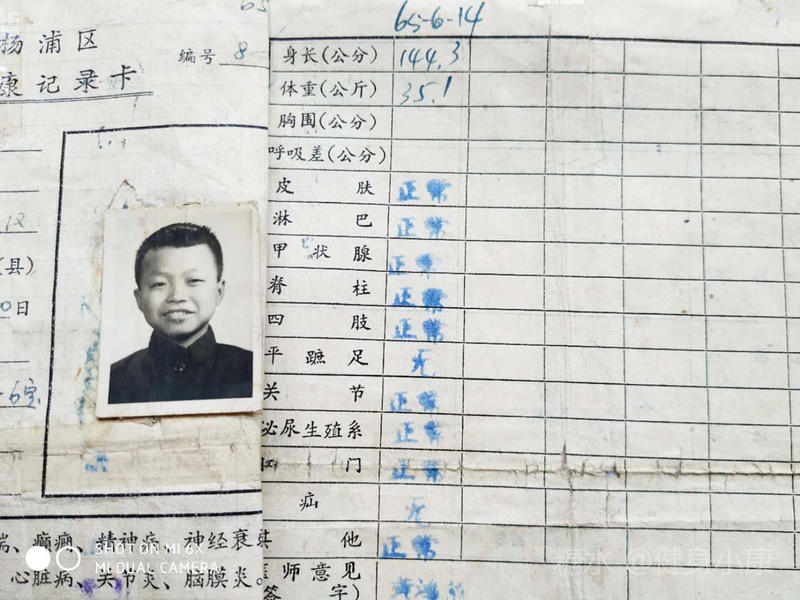 杨浦区
康记录卡
编号 8
区
(县)
0日
65-6-14
身长(公分) 144.3
体重(公斤) 35.1
胸围(公分)
呼吸差(公分)
皮肤 正常
淋巴 正常
甲状腺 正常
脊柱 正常
四肢 正常
平蹠足 无
关节 正常
泌尿生殖系 正常
肛门 正常
疝 无
其他 正常
医师意见
(签字)
喘、癫痫、精神病、神经衰
心脏病、关节炎、脑膜炎。
SHOT ON MI 6X
MI DUAL CAMERA
糖水 @健身小康